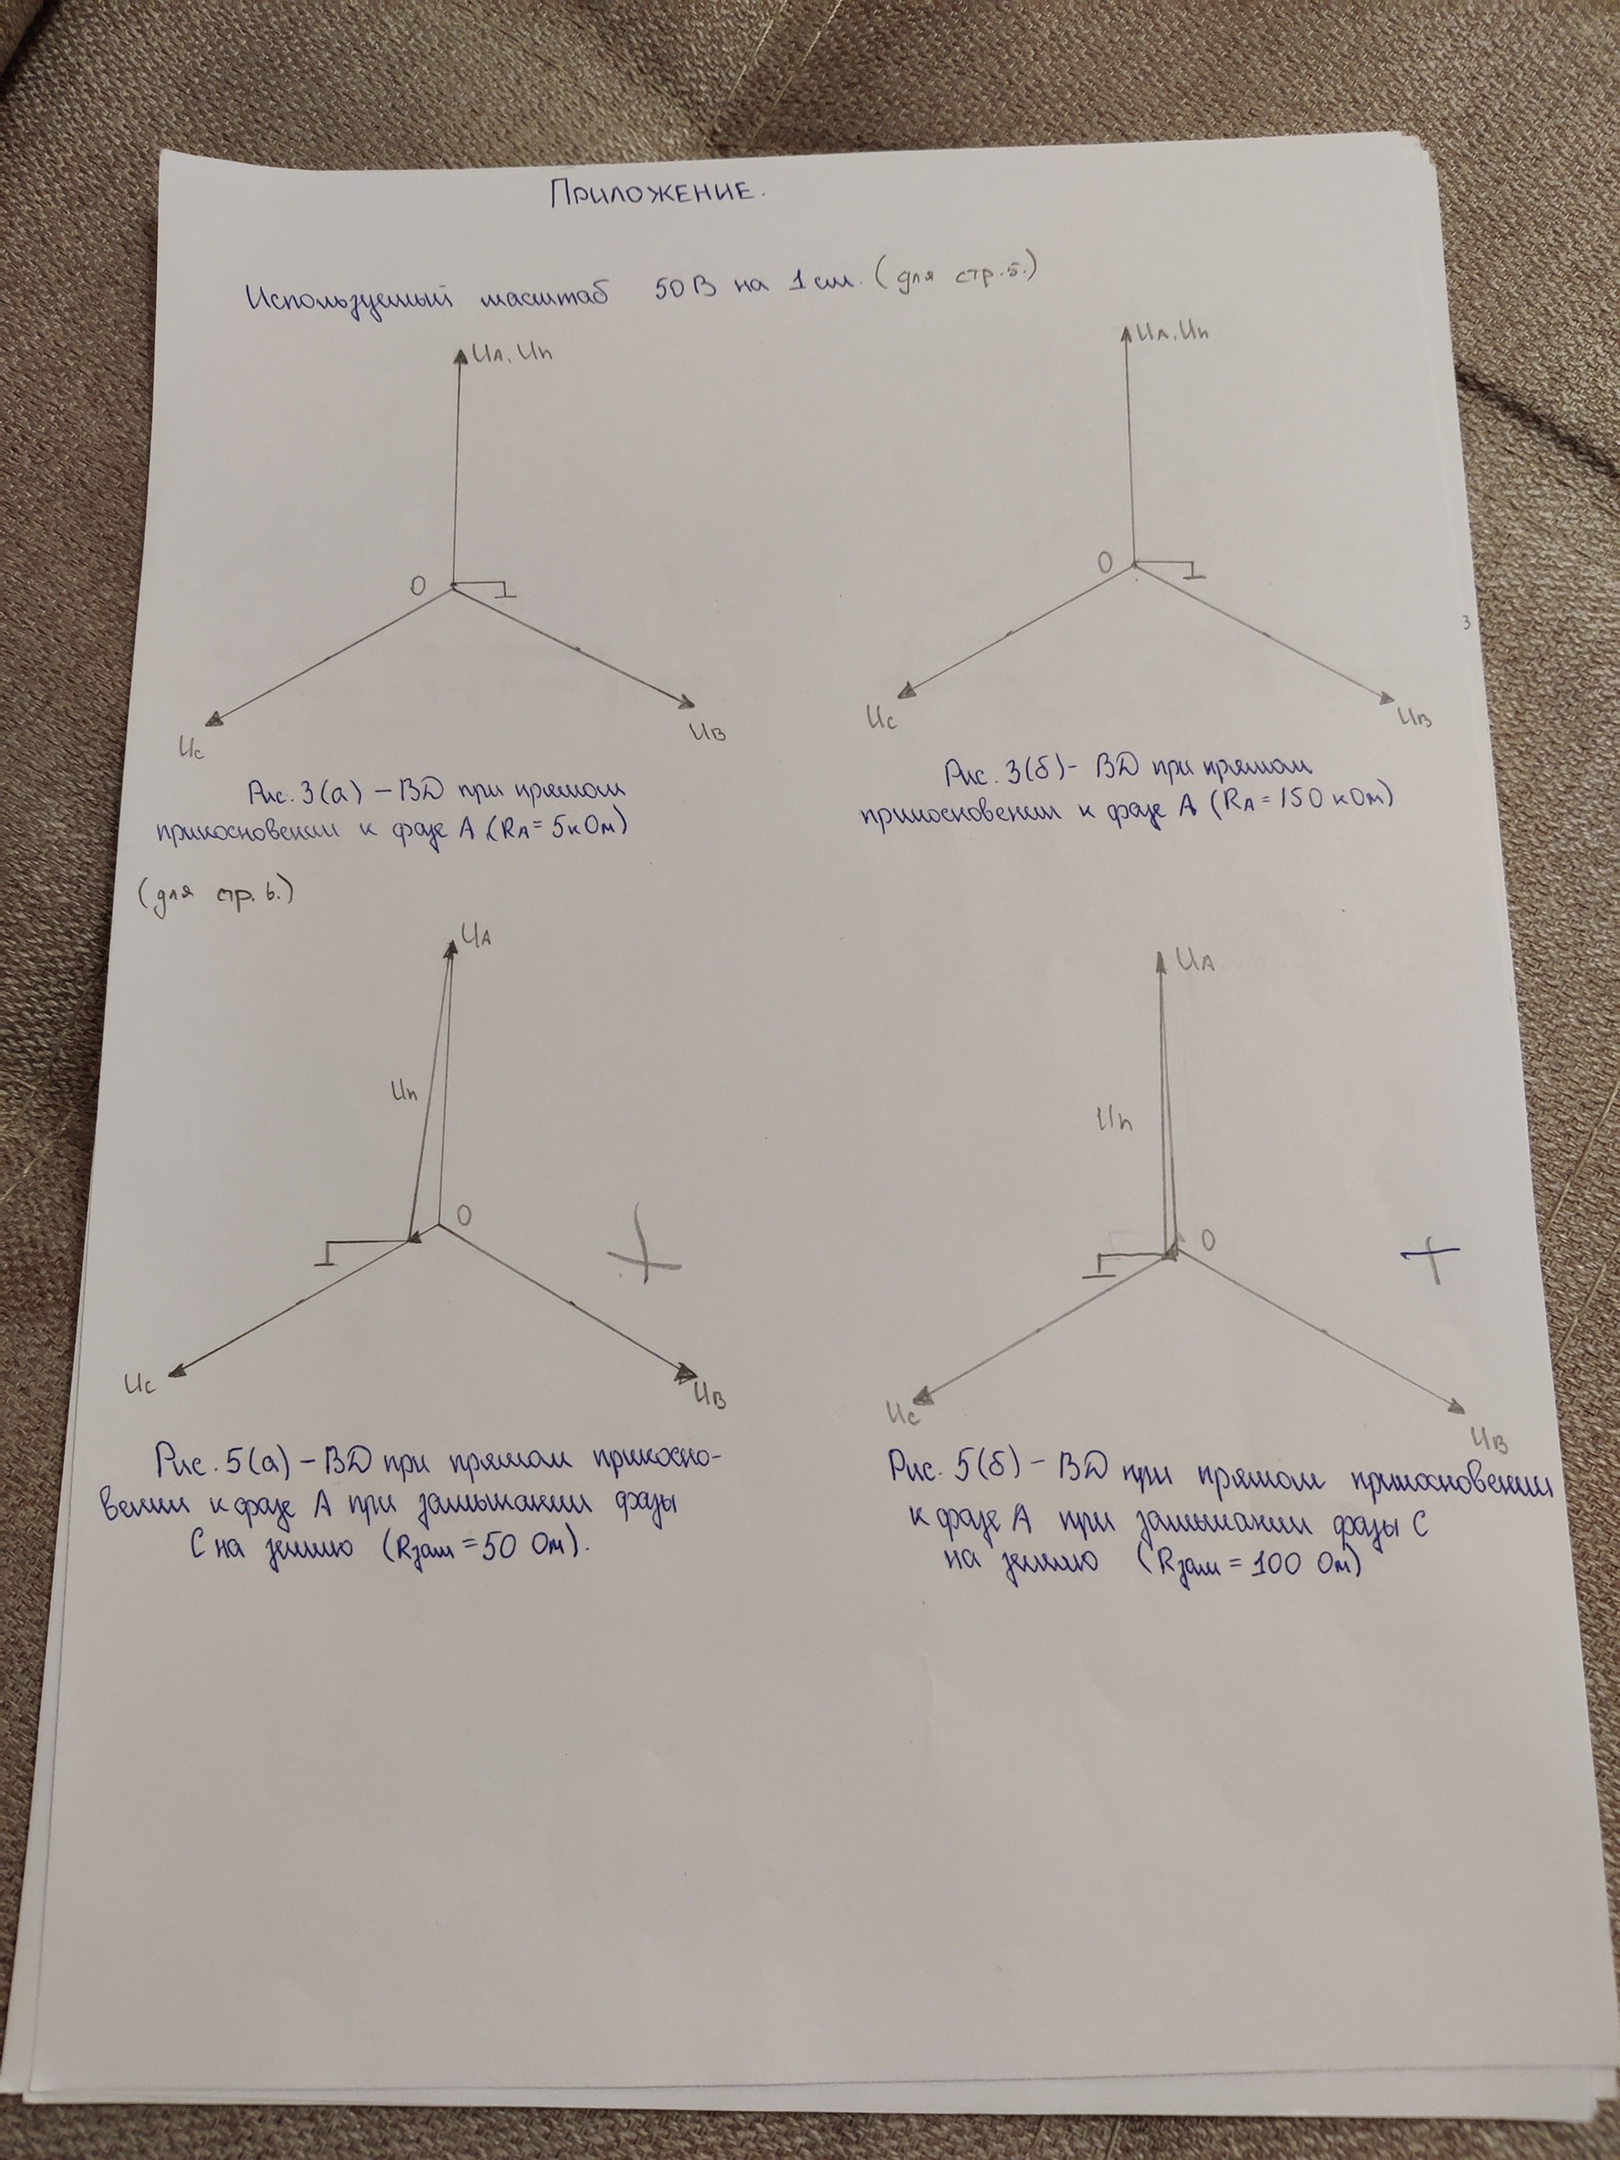 Приложение.
Используемый масштаб 50В на 1 см. (для стр.5.)
UA, Uh
UA, Uh
O
O
Uc
UB
Uc
UB
3
Рис. 3(а) – ВД при прямом
прикосновении к фазе А (RA = 5кОм)
Рис. 3(б)- ВД при прямом
прикосновении к фазе А (RA = 150 кОм)
(для стр. 6.)
UA
UA
Uh
Uh
O
O
Uc
UB
Uc
UB
Рис. 5(а) – ВД при прямом прикосно-
вении к фазе А при замыкании фазы
С на землю (Rзам = 50 Ом).
Рис. 5(б) – ВД при прямом прикосновении
к фазе А при замыкании фазы С
на землю (Rзам = 100 Ом)